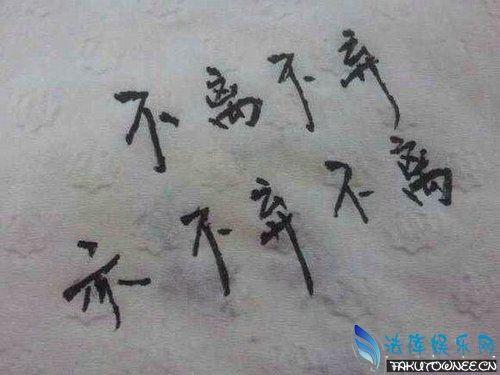 不离不弃
亦不弃不离
法库娱乐网
FAKUTOWNEE.CN